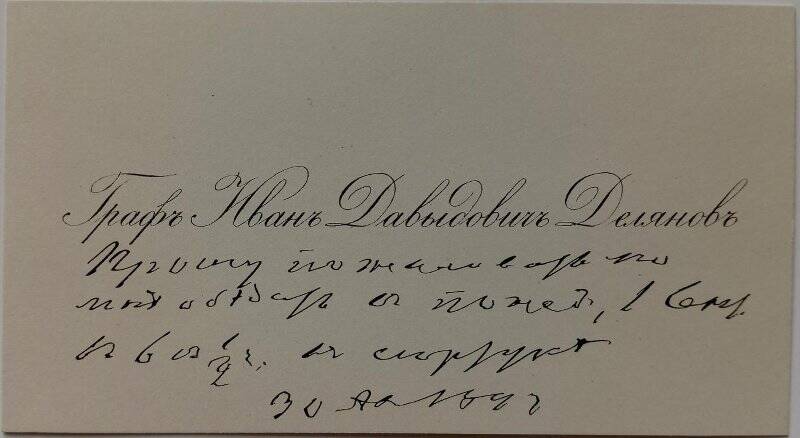 Графъ Иванъ Давыдовичъ Деляновъ
Прошу пожаловать ко
мнѣ обѣдать в понед,
в 6 1/2 ч. в сюртукѣ
30